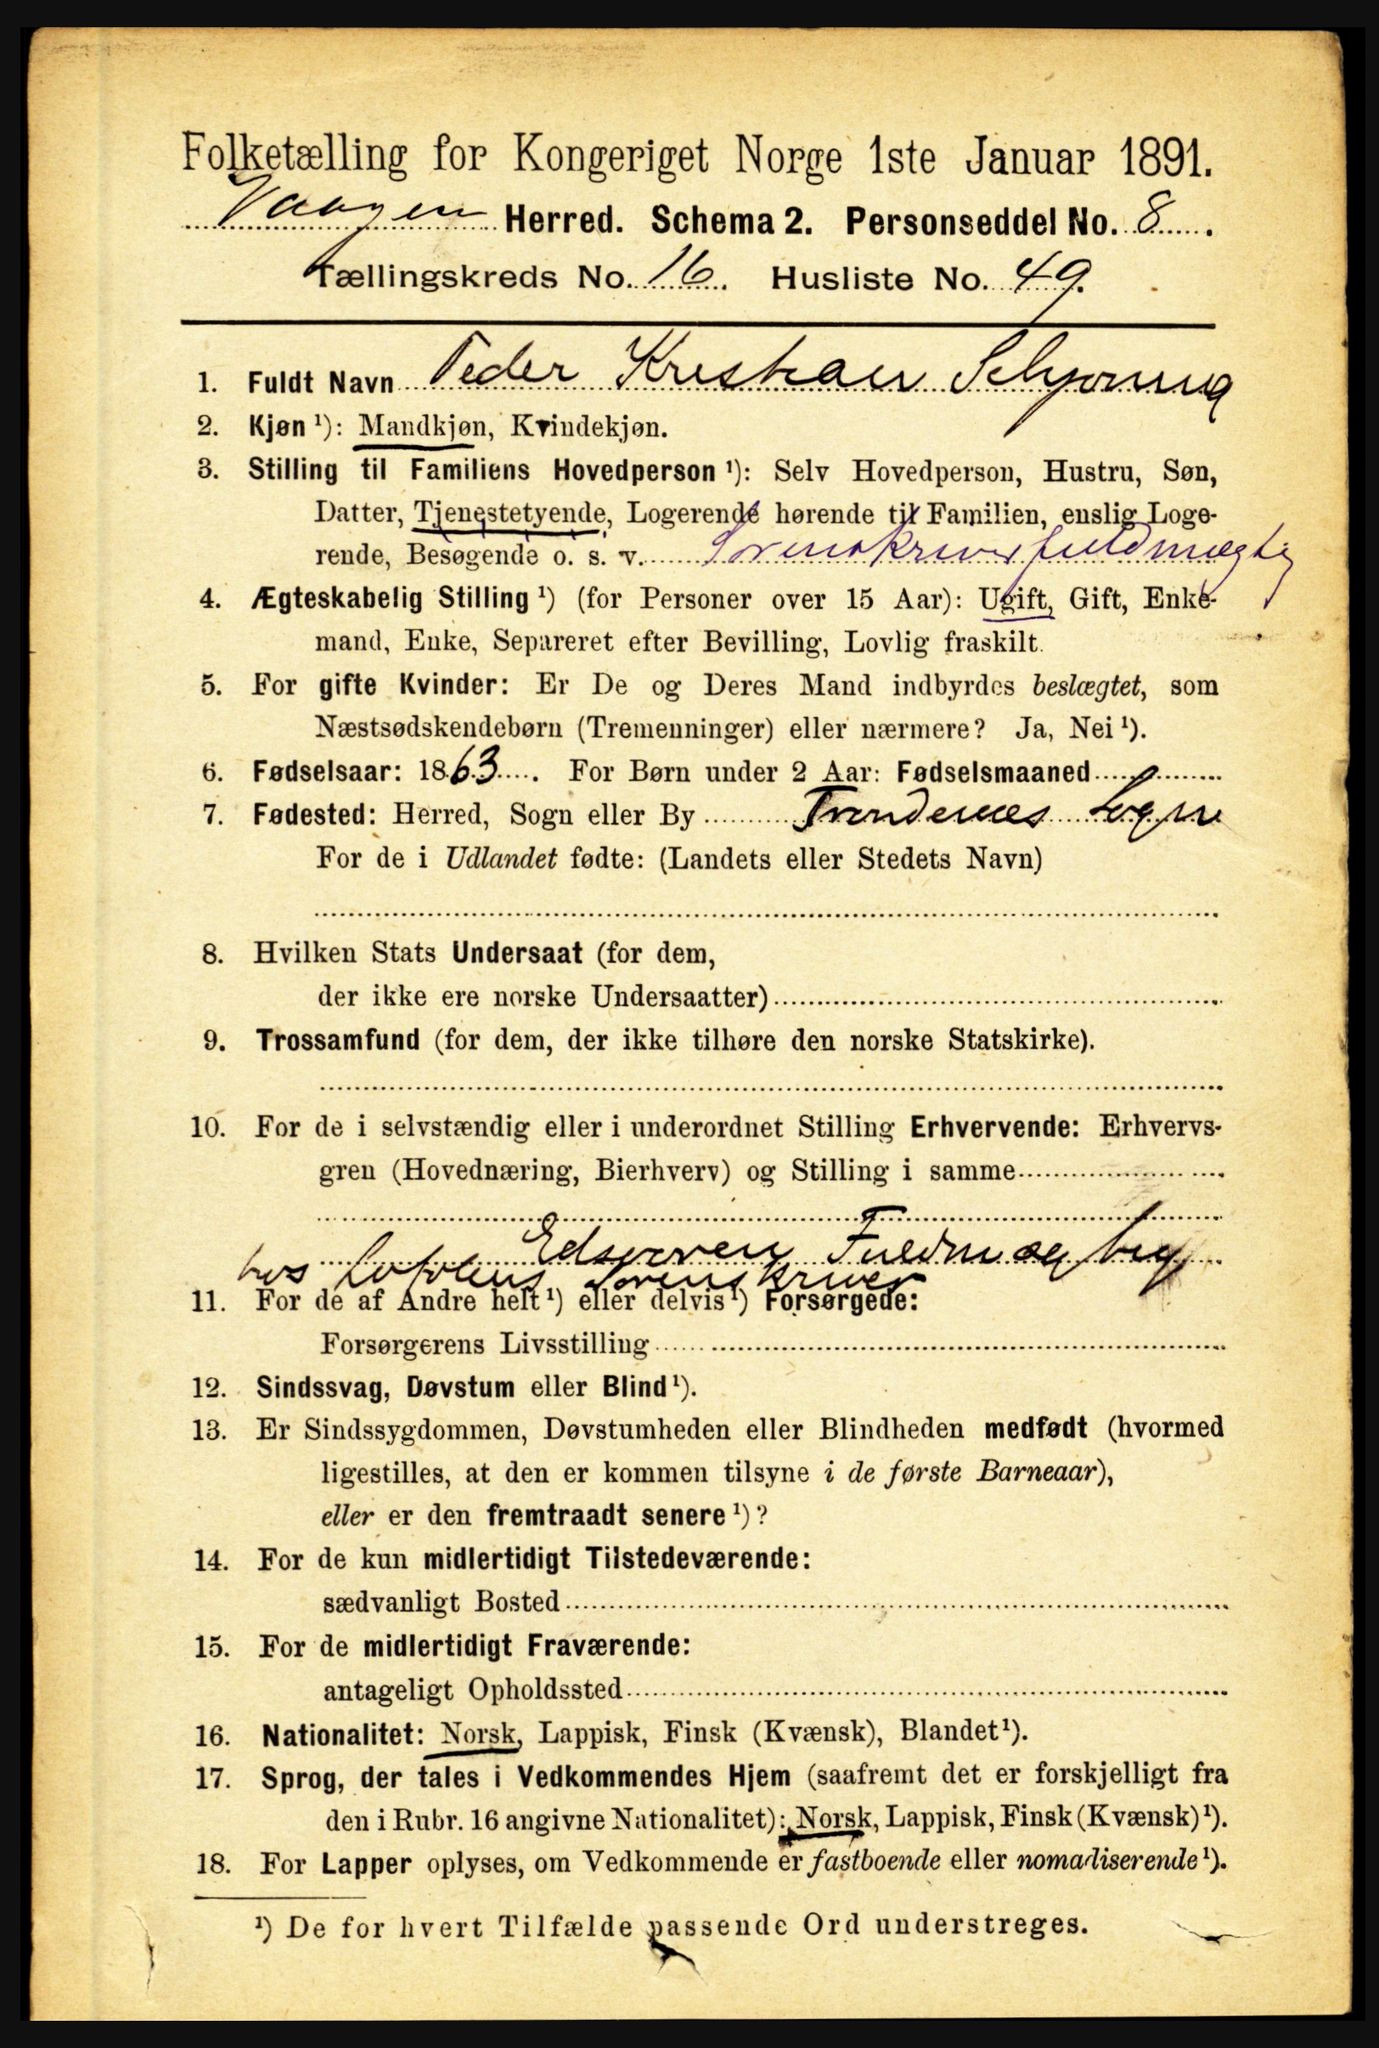 Folketælling for Kongeriget Norge 1ste Januar 1891.
Vaagen Herred. Schema 2. Personseddel No. 8.
Tællingskreds No. 16. Husliste No. 49.
1. Fuldt Navn Peder Kristian Schjønning
2. Kjøn ¹): Mandkjøn, Kvindekjøn.
3. Stilling til Familiens Hovedperson ¹): Selv Hovedperson, Hustru, Søn,
Datter, Tjenestetyende, Logerende hørende til Familien, enslig Loge-
rende, Besøgende o. s. v. Sorenskriverfuldmægtig
4. Ægteskabelig Stilling ¹) (for Personer over 15 Aar): Ugift, Gift, Enke-
mand, Enke, Separeret efter Bevilling, Lovlig fraskilt.
5. For gifte Kvinder: Er De og Deres Mand indbyrdes beslægtet, som
Næstsødskendebørn (Tremenninger) eller nærmere? Ja, Nei ¹).
6. Fødselsaar: 1863. For Børn under 2 Aar: Fødselsmaaned
7. Fødested: Herred, Sogn eller By Trondenes Sogn
For de i Udlandet fødte: (Landets eller Stedets Navn)
8. Hvilken Stats Undersaat (for dem,
der ikke ere norske Undersaatter)
9. Trossamfund (for dem, der ikke tilhøre den norske Statskirke).
10. For de i selvstændig eller i underordnet Stilling Erhvervende: Erhvervs-
gren (Hovednæring, Bierhverv) og Stilling i samme
Edsvoren Fuldmægtig
hos Lofotens Sorenskriver
11. For de af Andre helt ¹) eller delvis ¹) Forsørgede:
Forsørgerens Livsstilling
12. Sindssvag, Døvstum eller Blind ¹).
13. Er Sindssygdommen, Døvstumheden eller Blindheden medfødt (hvormed
ligestilles, at den er kommen tilsyne i de første Barneaar),
eller er den fremtraadt senere ¹)?
14. For de kun midlertidigt Tilstedeværende:
sædvanligt Bosted
15. For de midlertidigt Fraværende:
antageligt Opholdssted
16. Nationalitet: Norsk, Lappisk, Finsk (Kvænsk), Blandet ¹).
17. Sprog, der tales i Vedkommendes Hjem (saafremt det er forskjelligt fra
den i Rubr. 16 angivne Nationalitet): Norsk, Lappisk, Finsk (Kvænsk) ¹).
18. For Lapper oplyses, om Vedkommende er fastboende eller nomadiserende ¹).
¹) De for hvert Tilfælde passende Ord understreges.